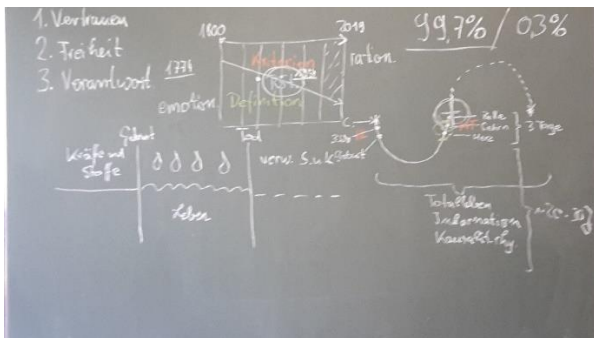 1. Vertrauen
2. Freiheit
3. Verantwort.
1774
1800
2019
99,7% / 0,3%
ration.
emotion.
Definition
C.
Geburt
Tod
Kräfte und
Stoffe
verw. S.u.K
Geburt
Leben
Zelle
Gehirn
Herz
3 Tage
Totalleben
Information